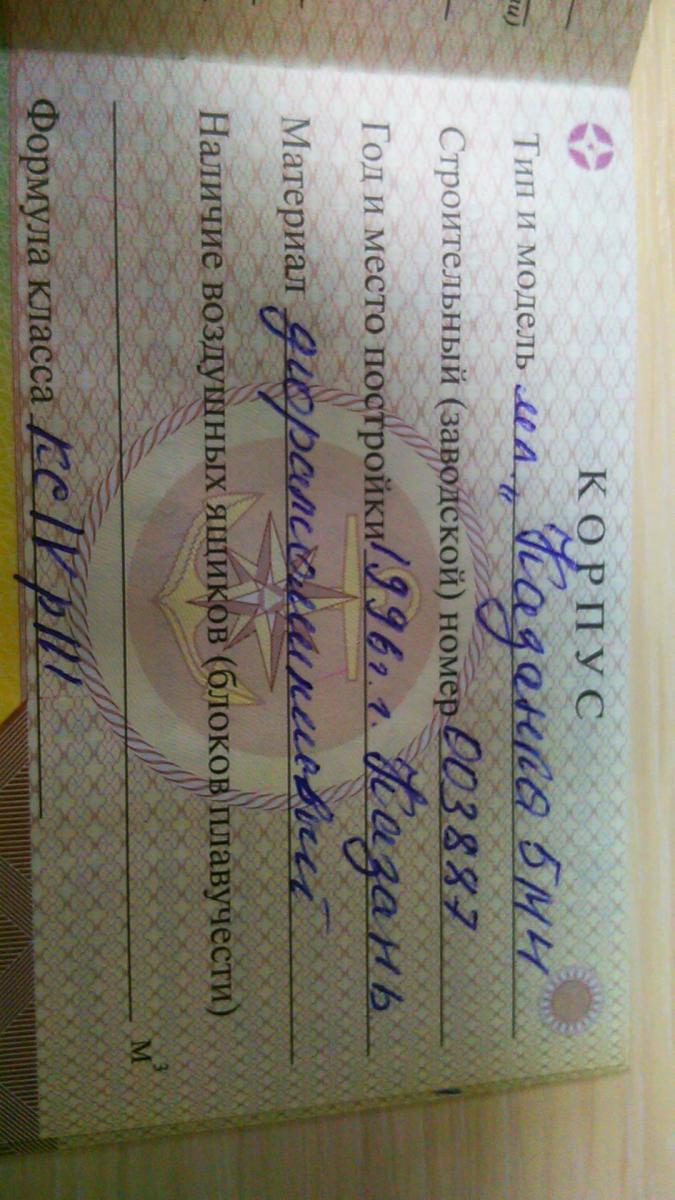 КОРПУС
Тип и модель мл „Казанка 5М4
Строительный (заводской) номер 003887
Год и место постройки 1996 г. г. Казань
Материал дюралюминиевый
Наличие воздушных ящиков (блоков плавучести)
м³
Формула класса КС IV рIII